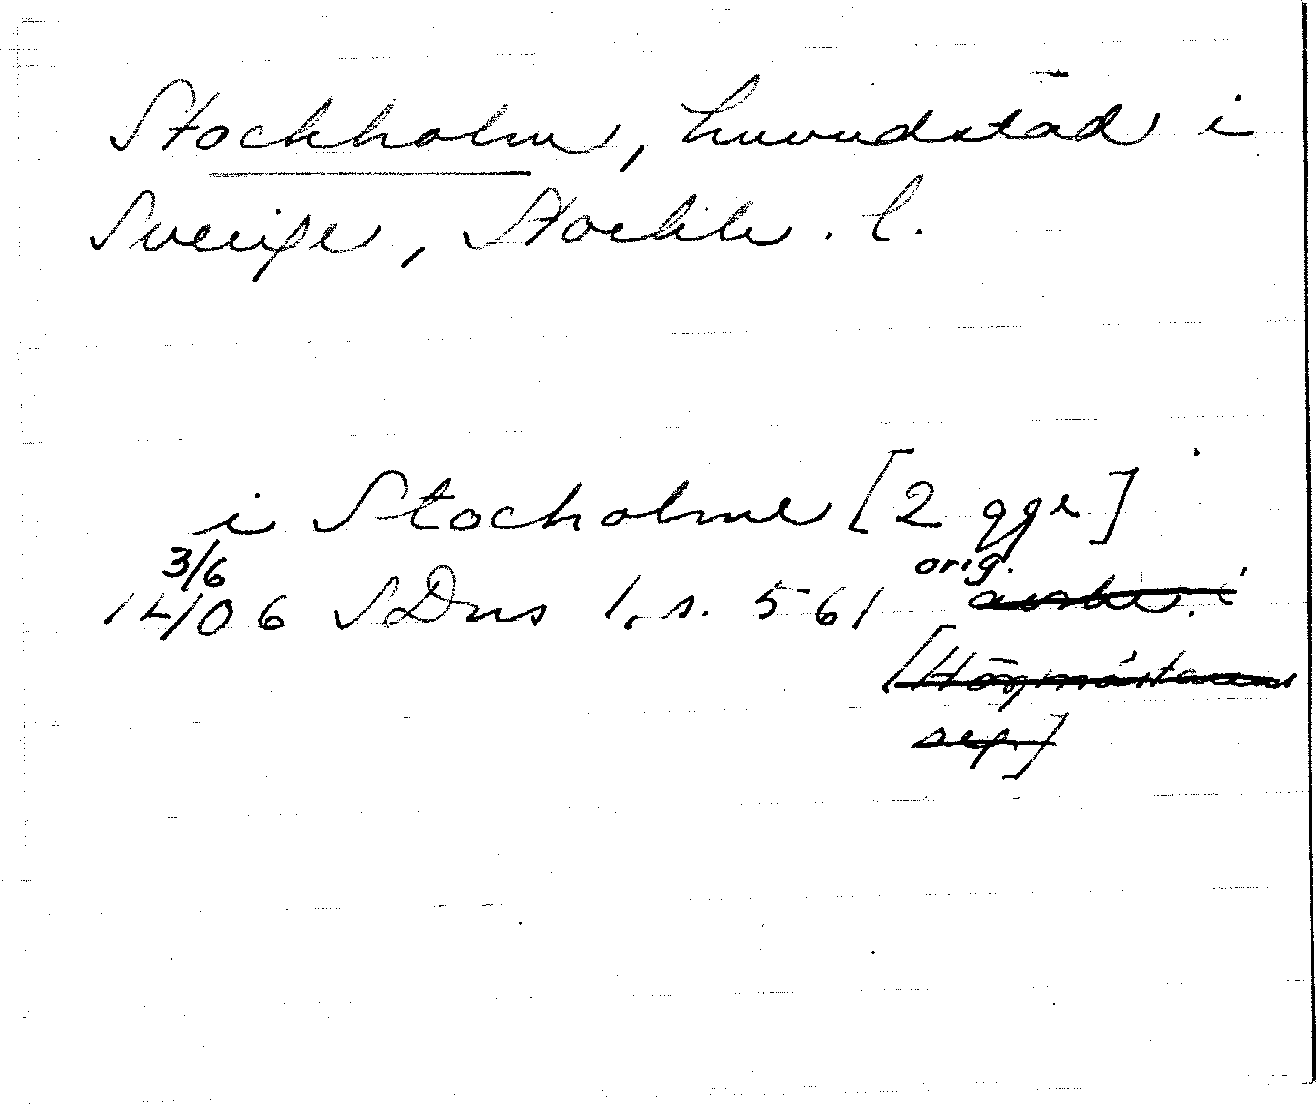 Stockholm, huvudstad i
Sverige, Stockh. l.
i Stocholme [2 ggr]
3/6 orig.
1406 SDns 1, s. 561 avskr. i
[Högmästarens
reg.]